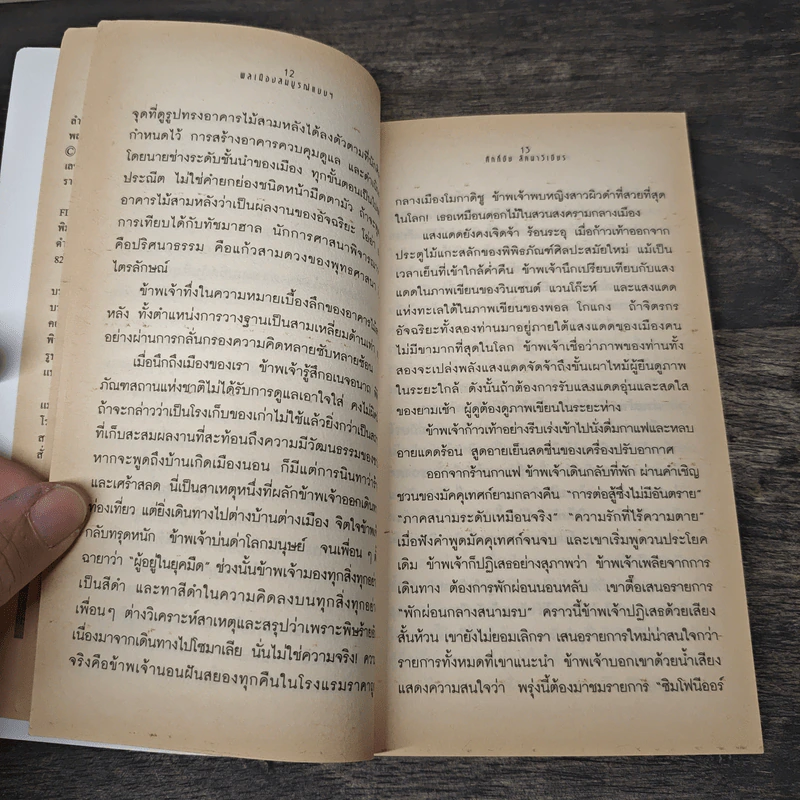 12
พลเมืองสมบูรณ์แบบๆ
จุดที่ดูรูปทรงอาคารไม้สามหลังได้ลงตัวตามที่
กำหนดไว้ การสร้างอาคารควบคุมดูแล และ
โดยนายช่างระดับชั้นนำของเมือง ทุกขั้นตอนเป็น
ประณีต ไม่ใช่คำยกย่องชนิดหน้ามืดตามัว ถ้าจะ
อาคารไม้สามหลังว่าเป็นผลงานของอัจฉริยะ
การเทียบได้กับทัชมาฮาล นักการศาสนาพิจารณา
คือปริศนาธรรม คือแก้วสามดวงของพุทธศาสนา
ไตรลักษณ์
ข้าพเจ้าทึ่งในความหมายเบื้องลึกของอาคาร
หลัง ทั้งตำแหน่งการวางฐานเป็นสามเหลี่ยมด้านเท่า
อย่างผ่านการกลั่นกรองความคิดหลายซับหลายซ้อน
เมื่อนึกถึงเมืองของเรา ข้าพเจ้ารู้สึกอเนจอนาถ
ภัณฑสถานแห่งชาติไม่ได้รับการดูแลเอาใจใส่ คงไม่
ถ้าจะกล่าวว่าเป็นโรงเก็บของเก่าไม่ใช้แล้วยิ่งกว่าเป็น
ที่เก็บสะสมผลงานที่สะท้อนถึงความมีวัฒนธรรมของ
หากจะพูดถึงบ้านเกิดเมืองนอน ก็มีแต่การนินทาว่า
และเศร้าสลด นี่เป็นสาเหตุหนึ่งที่ผลักข้าพเจ้าออกเดินทาง
ท่องเที่ยว แต่ยิ่งเดินทางไปต่างบ้านต่างเมือง จิตใจข้าพเจ้า
กลับทรุดหนัก ข้าพเจ้าบ่นด่าโลกมนุษย์ จนเพื่อนๆ
ฉายาว่า “ผู้อยู่ในยุคมืด” ช่วงนั้นข้าพเจ้ามองทุกสิ่งทุกอย่าง
เป็นสีดำ และทาสีดำในความคิดลงบนทุกสิ่งทุกอย่าง
เพื่อนๆ ต่างวิเคราะห์สาเหตุและสรุปว่าเพราะพิษร้าย
เนื่องมาจากเดินทางไปโซมาเลีย นั่นไม่ใช่ความจริง!
จริงคือข้าพเจ้านอนฝันสยองทุกคืนในโรงแรมราคาถูก
13
ศักดิ์ชัย ลัคนาวิเชียร
กลางเมืองโมกาดิชู ข้าพเจ้าพบหญิงสาวผิวดำที่สวยที่สุด
ในโลก! เธอเหมือนดอกไม้ในสวนสงครามกลางเมือง
แสงแดดยังคงเจิดจ้า ร้อนระอุ เมื่อก้าวเท้าออกจาก
ประตูไม้แกะสลักของพิพิธภัณฑ์ศิลปะสมัยใหม่ แม้เป็น
เวลาเย็นที่เข้าใกล้ค่ำคืน ข้าพเจ้านึกเปรียบเทียบกับแสง
แดดในภาพเขียนของวินเซนต์ แวนโก๊ะห์ และแสงแดด
แห่งทะเลใต้ในภาพเขียนของพอล โกแกง ถ้าจิตรกร
อัจฉริยะทั้งสองท่านมาอยู่ภายใต้แสงแดดของเมืองคน
ไม่มีขามากที่สุดในโลก ข้าพเจ้าเชื่อว่าภาพของท่านทั้ง
สองจะเปล่งพลังแสงแดดจัดจ้าถึงขั้นเผาไหม้ผู้ยืนดูภาพ
ในระยะใกล้ ดังนั้นถ้าต้องการรับแสงแดดอุ่นและสดใส
ของยามเช้า ผู้ดูต้องดูภาพเขียนในระยะห่าง
ข้าพเจ้าก้าวเท้าอย่างรีบเร่งเข้าไปนั่งดื่มกาแฟและหลบ
อายแดดร้อน สูดอายเย็นสดชื่นของเครื่องปรับอากาศ
ออกจากร้านกาแฟ ข้าพเจ้าเดินกลับที่พัก ผ่านคำเชิญ
ชวนของมัคคุเทศก์ยามกลางคืน “การต่อสู้ซึ่งไม่มีอันตราย”
“ภาคสนามระดับเหมือนจริง” “ความรักที่ไร้ความตาย”
เมื่อฟังคำพูดมัคคุเทศก์จนจบ และเขาเริ่มพูดวนประโยค
เดิม ข้าพเจ้าก็ปฏิเสธอย่างสุภาพว่า ข้าพเจ้าเพลียจากการ
เดินทาง ต้องการพักผ่อนนอนหลับ เขาตื๊อเสนอรายการ
“พักผ่อนกลางสนามรบ” คราวนี้ข้าพเจ้าปฏิเสธด้วยเสียง
สั้นห้วน เขายังไม่ยอมเลิกรา เสนอรายการใหม่น่าสนใจกว่า
รายการทั้งหมดที่เขาแนะนำ ข้าพเจ้าบอกเขาด้วยน้ำเสียง
แสดงความสนใจว่า พรุ่งนี้ต้องมาชมรายการ “ซิมโฟนีออร์